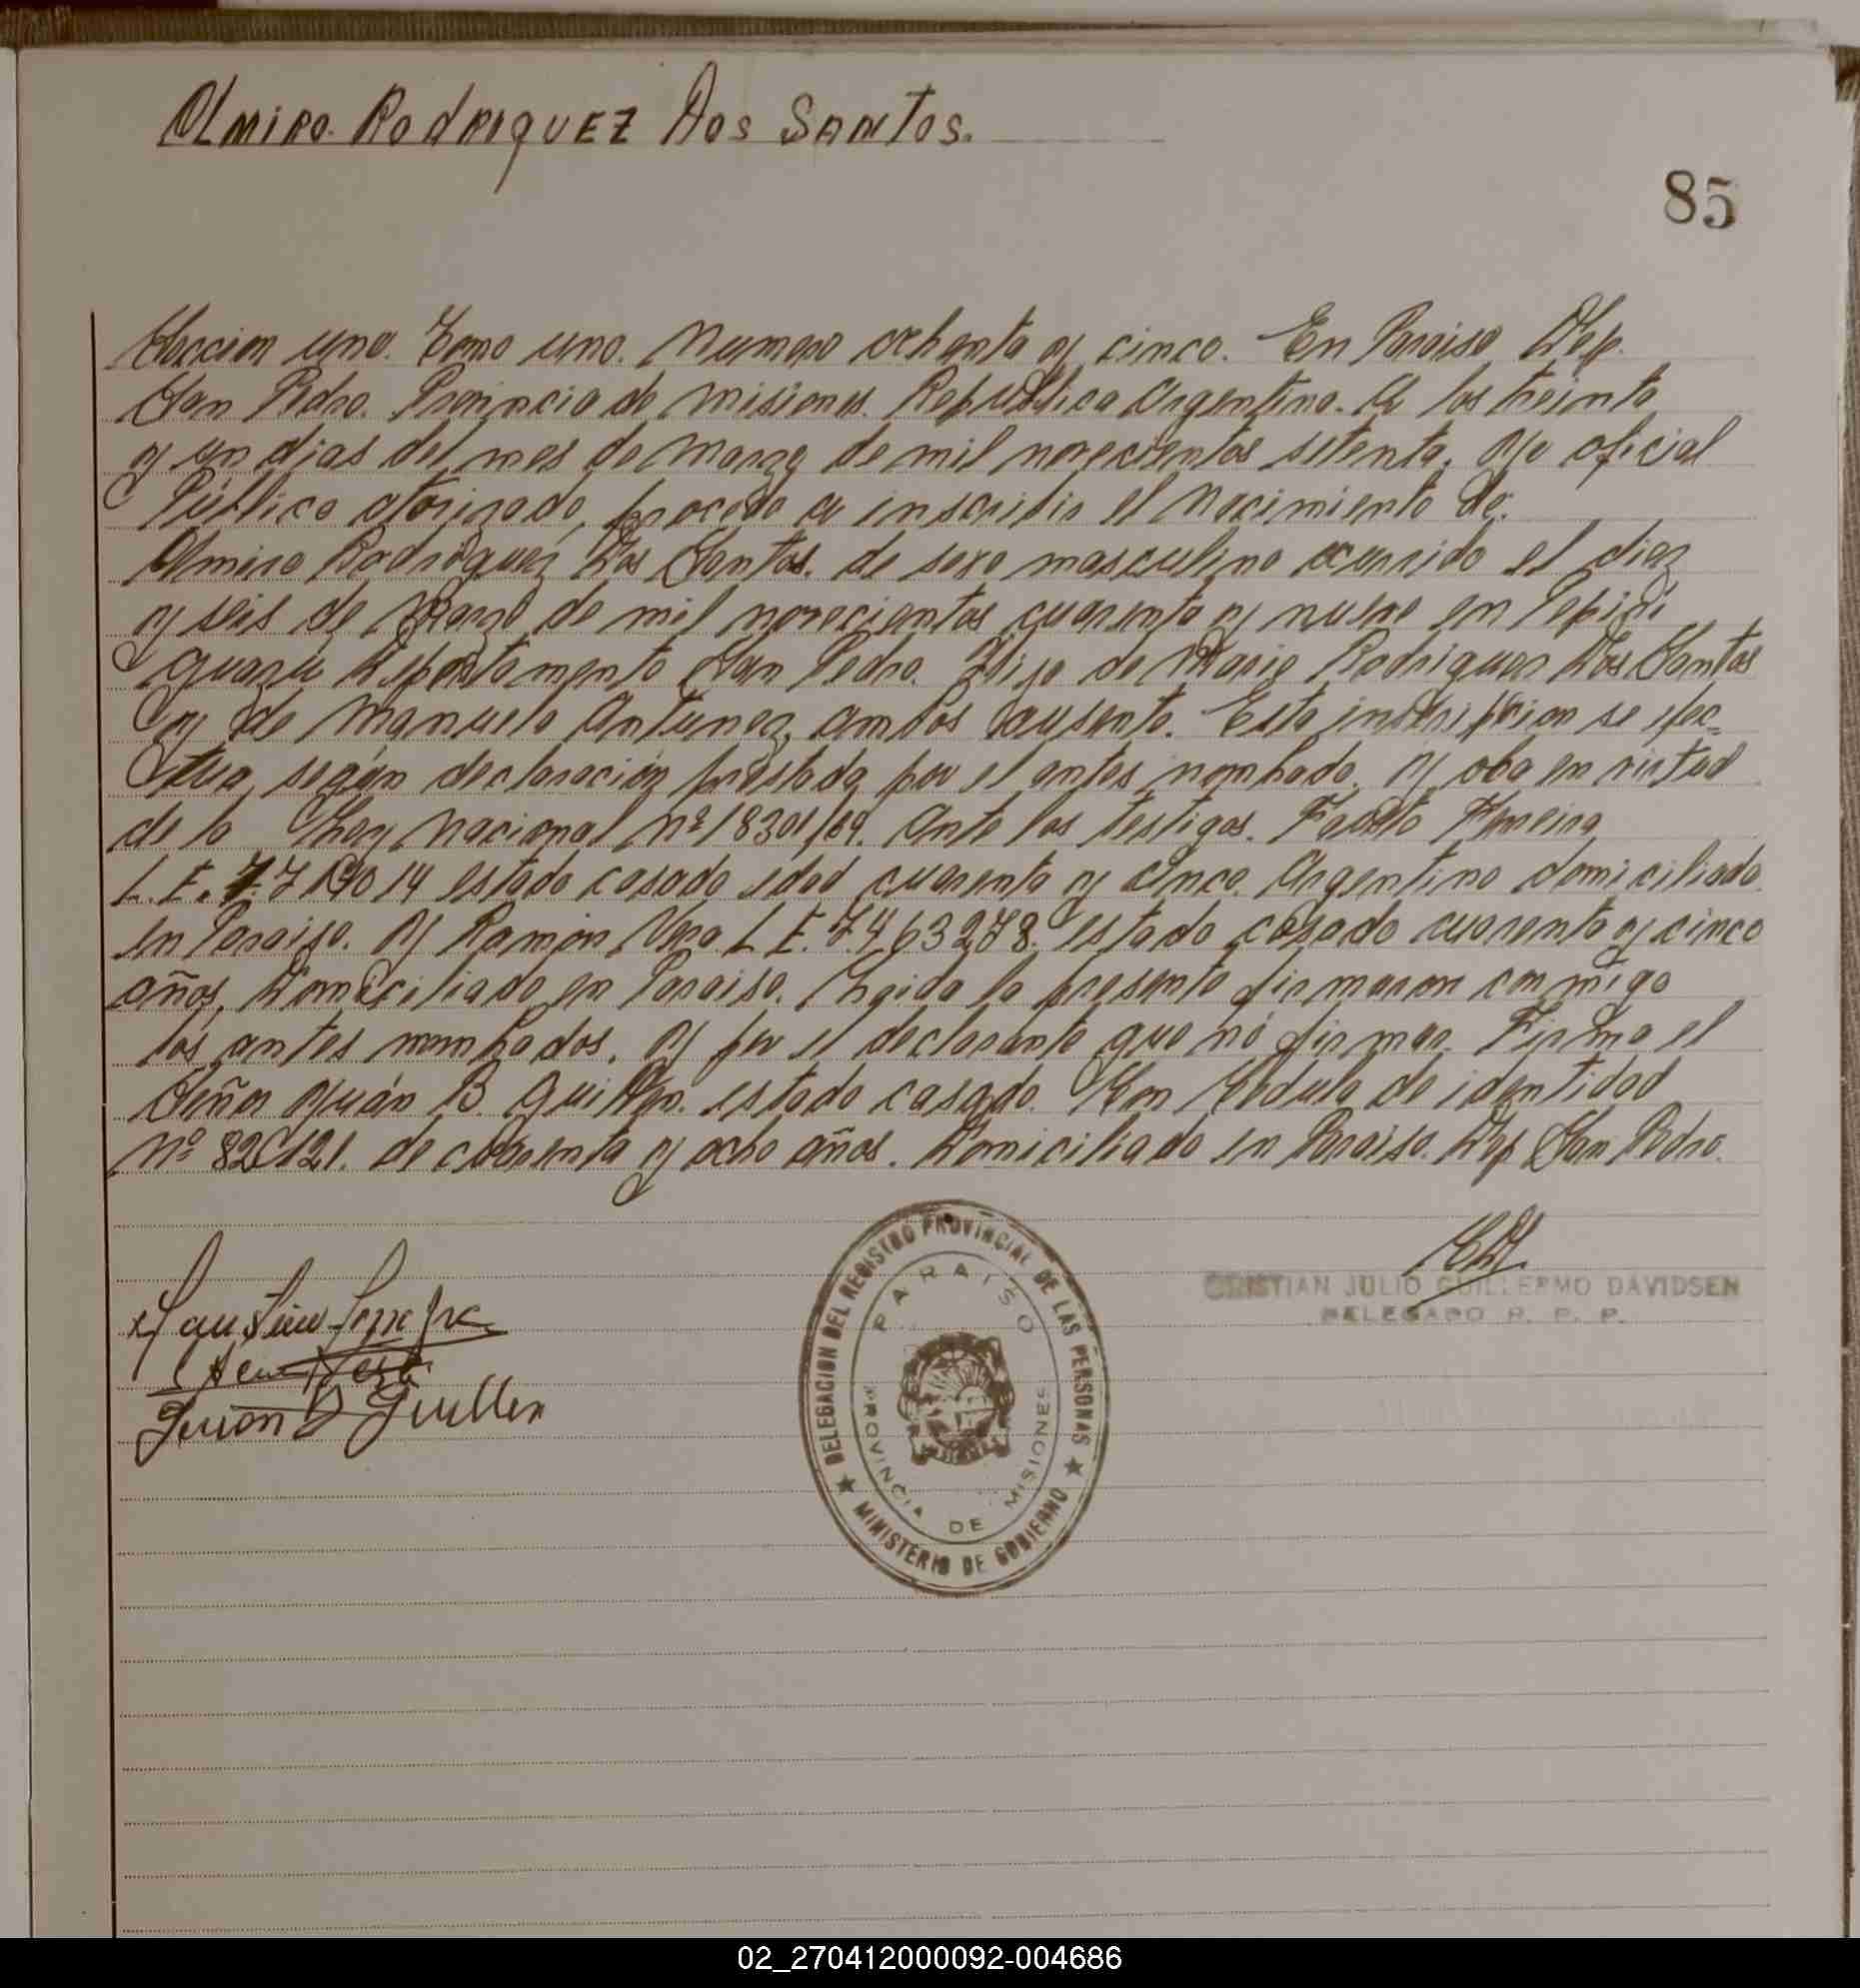 Olmiro Rodriquez Dos Santos.
85
Seccion uno. Tomo uno. Numero ochenta y cinco. En Paraiso Dep.
San Pedro. Provincia de Misiones. Republica Argentina. A los treinta
y un dias del mes de Marzo de mil novecientos setenta. Yo oficial
Público
procedo a inscribir el Nacimiento de:
Olmiro Rodriguez Dos Santos. de sexo masculino ocurrido el diez
y seis de Marzo de mil novecientos cuarenta y nueve en Pepiri
Guazu Departamento San Pedro. Hijo de Mario Rodriguez Dos Santos
y de Manuela Antunez, ambos ausente. Esta inscripcion se efec-
tua, según declaración prestada por el antes nombado. y oba en virtud
de la Ley Nacional Nº 18301/69. Ante los testigos.
L.E. estado casado edad cuarenta y cinco. Argentino domiciliado
en Paraiso. Y Ramón Vera L.E. 7.463278. estado casado cuarenta y cinco
años. Domiciliado en Paraiso. Leida la presente firmaron conmigo
los antes nombados. y por el declarante que nó firmar. Firma el
Señor Juán B. Guillen. estado casado. Con Cedula de identidad
Nº de cuarenta y ocho años. Domiciliado en Paraiso. Dep San Pedro.
Juan B Guillen
CRISTIAN JULIO GUILLERMO DAVIDSEN
DELEGADO R. P. P.
DELEGACION DEL REGISTRO PROVINCIAL DE LAS PERSONAS
PARAISO
PROVINCIA DE MISIONES
MINISTERIO DE GOBIERNO
02_270412000092-004686